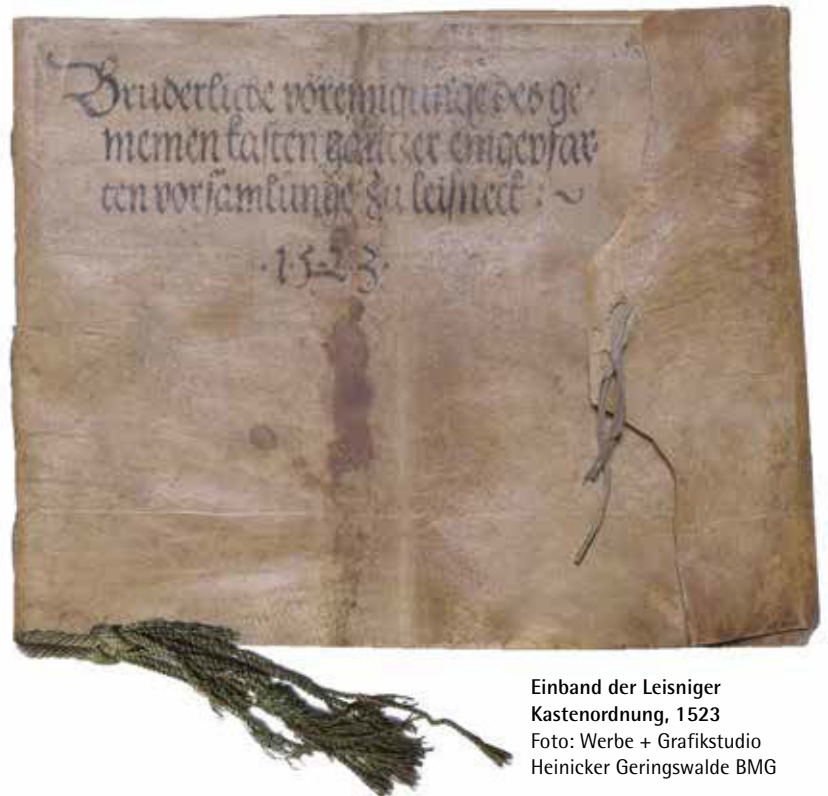 Bruderliche voreinigunge des ge-
meinen kasten gantzer eingepfar-
ten vorsamlunge zu leisneck : ~
·1·5·2·3·
Einband der Leisniger
Kastenordnung, 1523
Foto: Werbe + Grafikstudio
Heinicker Geringswalde BMG